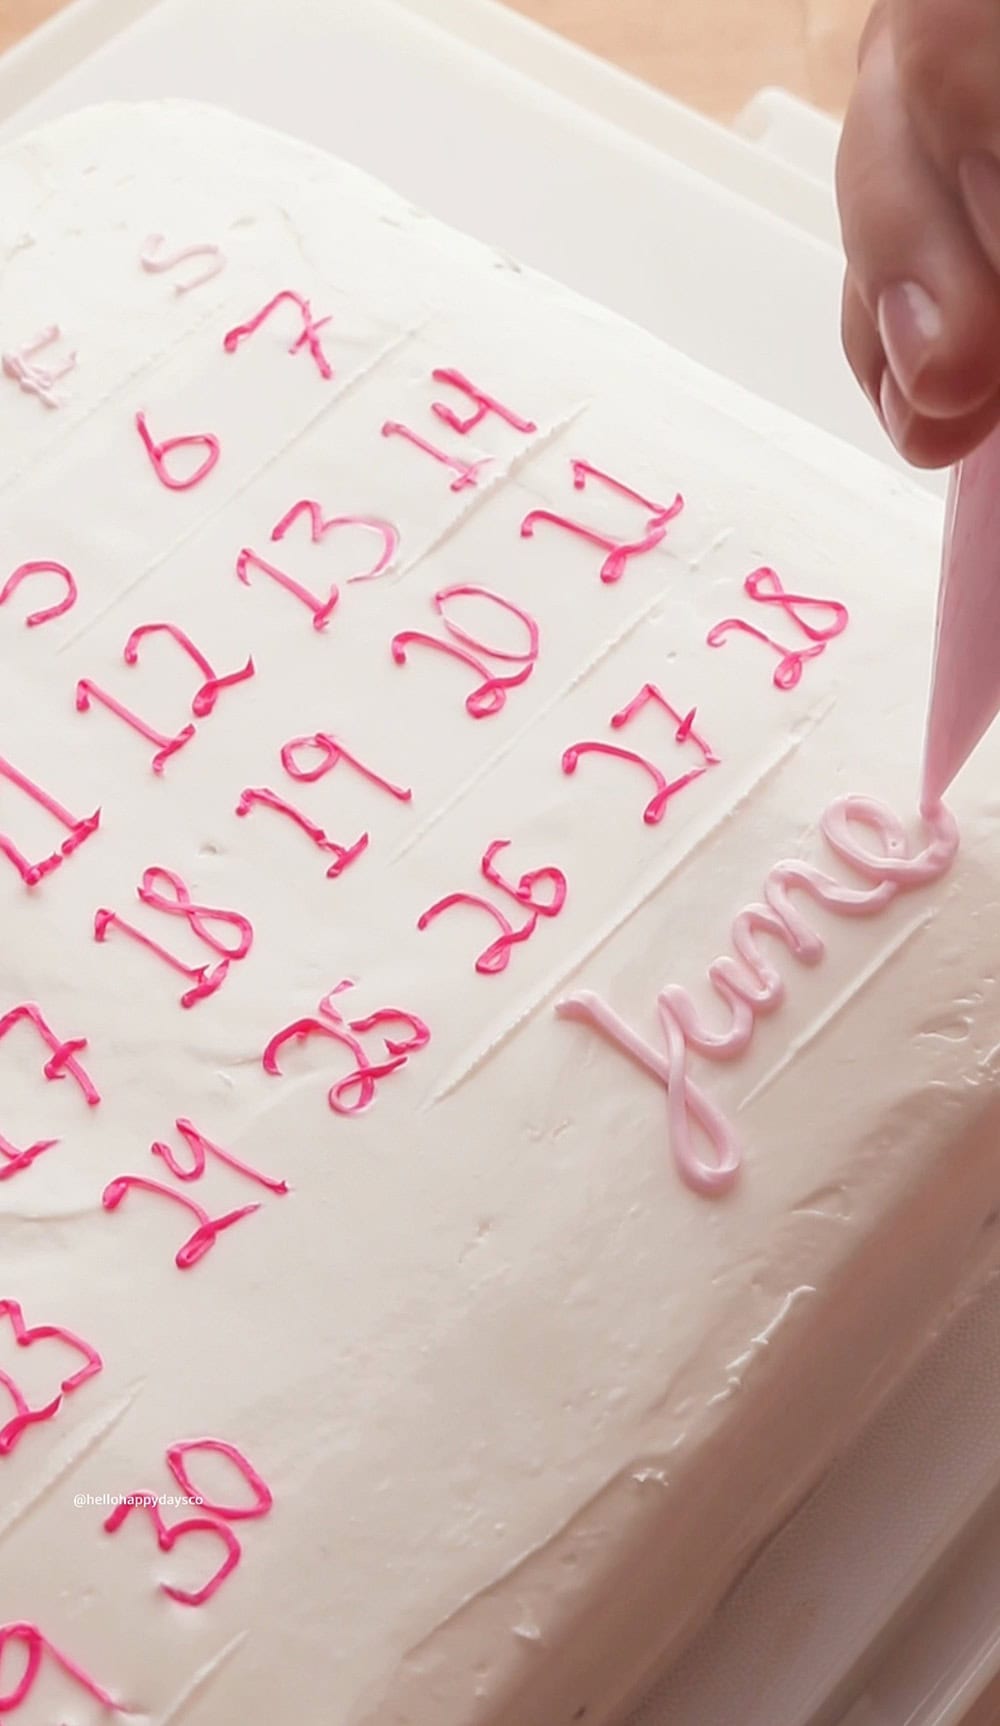 F S
5 6 7
11 12 13 14
17 18 19 20 21
23 24 25 26 27 28
9 30
June
@hellohappydaysco